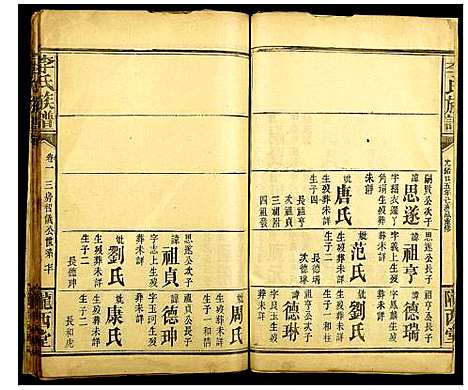 李氏族譜
隴西堂
嗣賢公次子
諱思遂
生歿葬未詳
妣唐氏
生歿葬未詳
生子四
長祖亨
次祖貞
三祖
四祖
思遂公長子
諱祖亨
字義上生歿
葬未詳
妣范氏
生歿葬未詳
生子二
長德瑞
次德琳
祖亨公長子
諱德瑞
生歿葬未詳
妣劉氏
生歿葬未詳
祖亨公次子
諱德琳
字良玉生歿
葬未詳
李氏族譜
卷一
三房智儀公世系
隴西堂
思遂公次子
諱祖貞
字志上生歿
葬未詳
妣劉氏
生歿葬未詳
生子一
長德珅
妣周氏
生歿葬未詳
生子一
祖貞公長子
諱德珅
字玉珂生歿
葬未詳
妣康氏
生歿葬未詳
生子二
長和虎